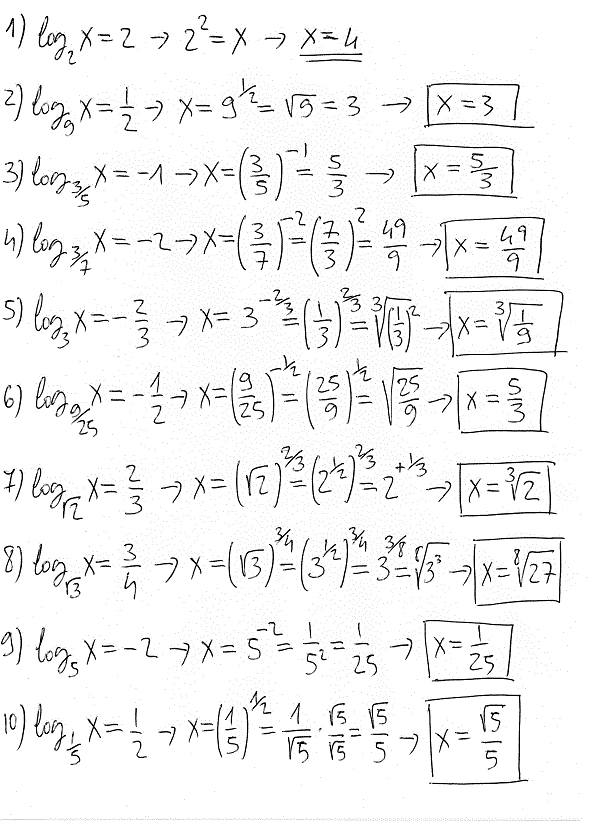 1) log₂ x = 2 → 2² = x → x = 4
2) log₉ x = 1/2 → x = 9^(1/2) = √9 = 3 → x = 3
3) log_(3/5) x = -1 → x = (3/5)^(-1) = 5/3 → x = 5/3
4) log_(3/7) x = -2 → x = (3/7)^(-2) = (7/3)^2 = 49/9 → x = 49/9
5) log₃ x = -2/3 → x = 3^(-2/3) = (1/3)^(2/3) = ∛(1/3)² → x = ∛(1/9)
6) log_(9/25) x = -1/2 → x = (9/25)^(-1/2) = (25/9)^(1/2) = √(25/9) → x = 5/3
7) log_(√2) x = 2/3 → x = (√2)^(2/3) = (2^(1/2))^(2/3) = 2^(+1/3) → x = ∛2
8) log_(√3) x = 3/4 → x = (√3)^(3/4) = (3^(1/2))^(3/4) = 3^(3/8) = ⁸√(3³) → x = ⁸√27
9) log₅ x = -2 → x = 5^(-2) = 1/5² = 1/25 → x = 1/25
10) log_(1/5) x = 1/2 → x = (1/5)^(1/2) = 1/√5 · √5/√5 = √5/5 → x = √5/5